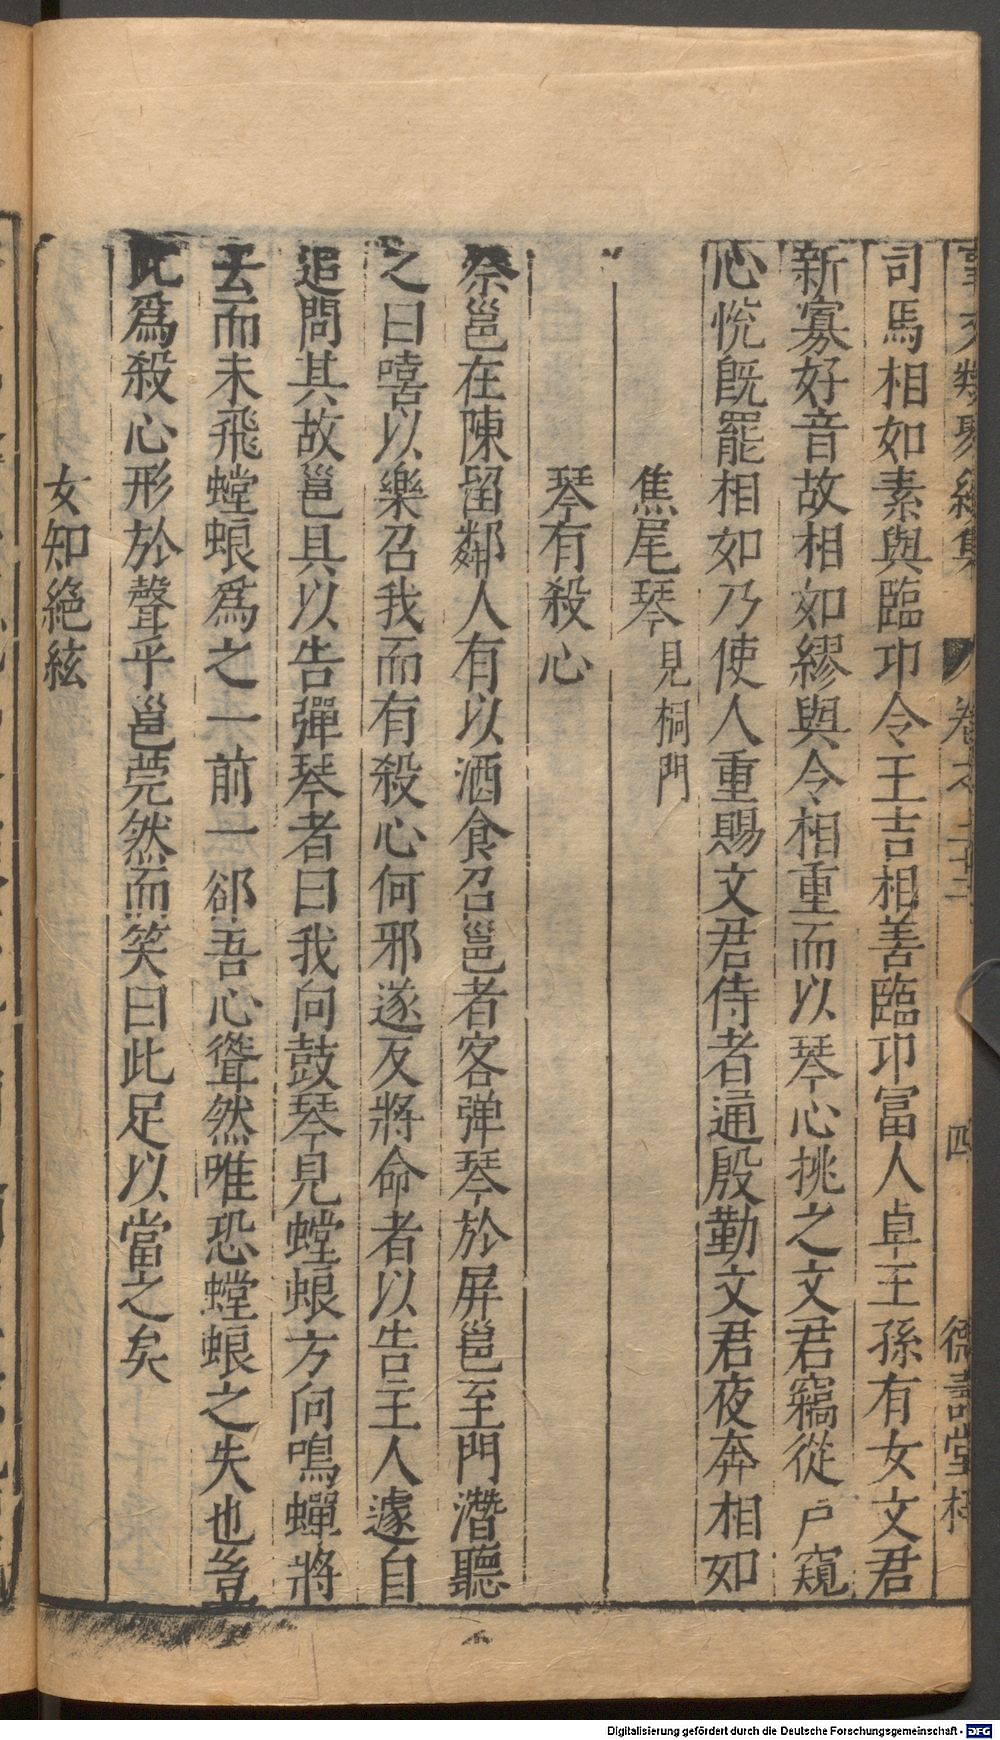 事文類聚續集 卷之二十二 四 德壽堂梓
司馬相如素與臨卭令王吉相善臨卭富人卓王孫有女文君
新寡好音故相如繆與令相重而以琴心挑之文君竊從户窺
心恱旣罷相如乃使人重賜文君侍者通殷勤文君夜奔相如
焦尾琴見桐門
琴有殺心
祭邕在陳留鄰人有以酒食召邕者客弹琴於屏邕至門潛聽
之曰嘻以樂召我而有殺心何邪遂反將命者以告主人遽自
追問其故邕具以告彈琴者曰我向鼓琴見螳蜋方向鳴蟬將
去而未飛螳蜋爲之一前一郤吾心聳然唯恐螳蜋之失也豈
此爲殺心形於聲乎邕莞然而笑曰此足以當之矣
女知絶絃
Digitalisierung gefördert durch die Deutsche Forschungsgemeinschaft - DFG